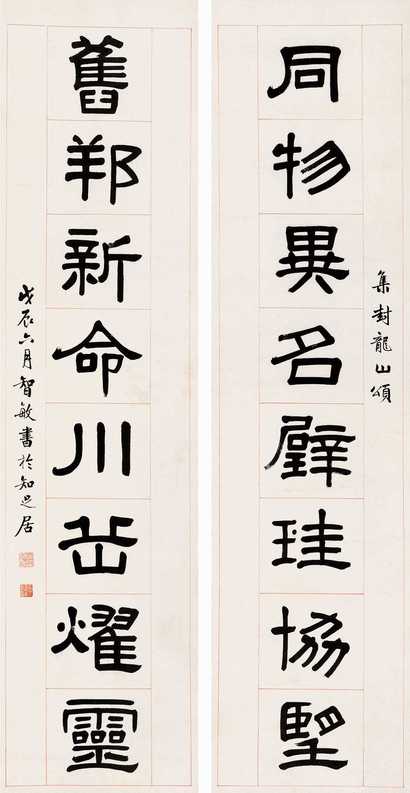 集封龍山頌
同物異名璧珪協朢
舊邦新命川岳燿靈
戊辰六月智敏書於知足居